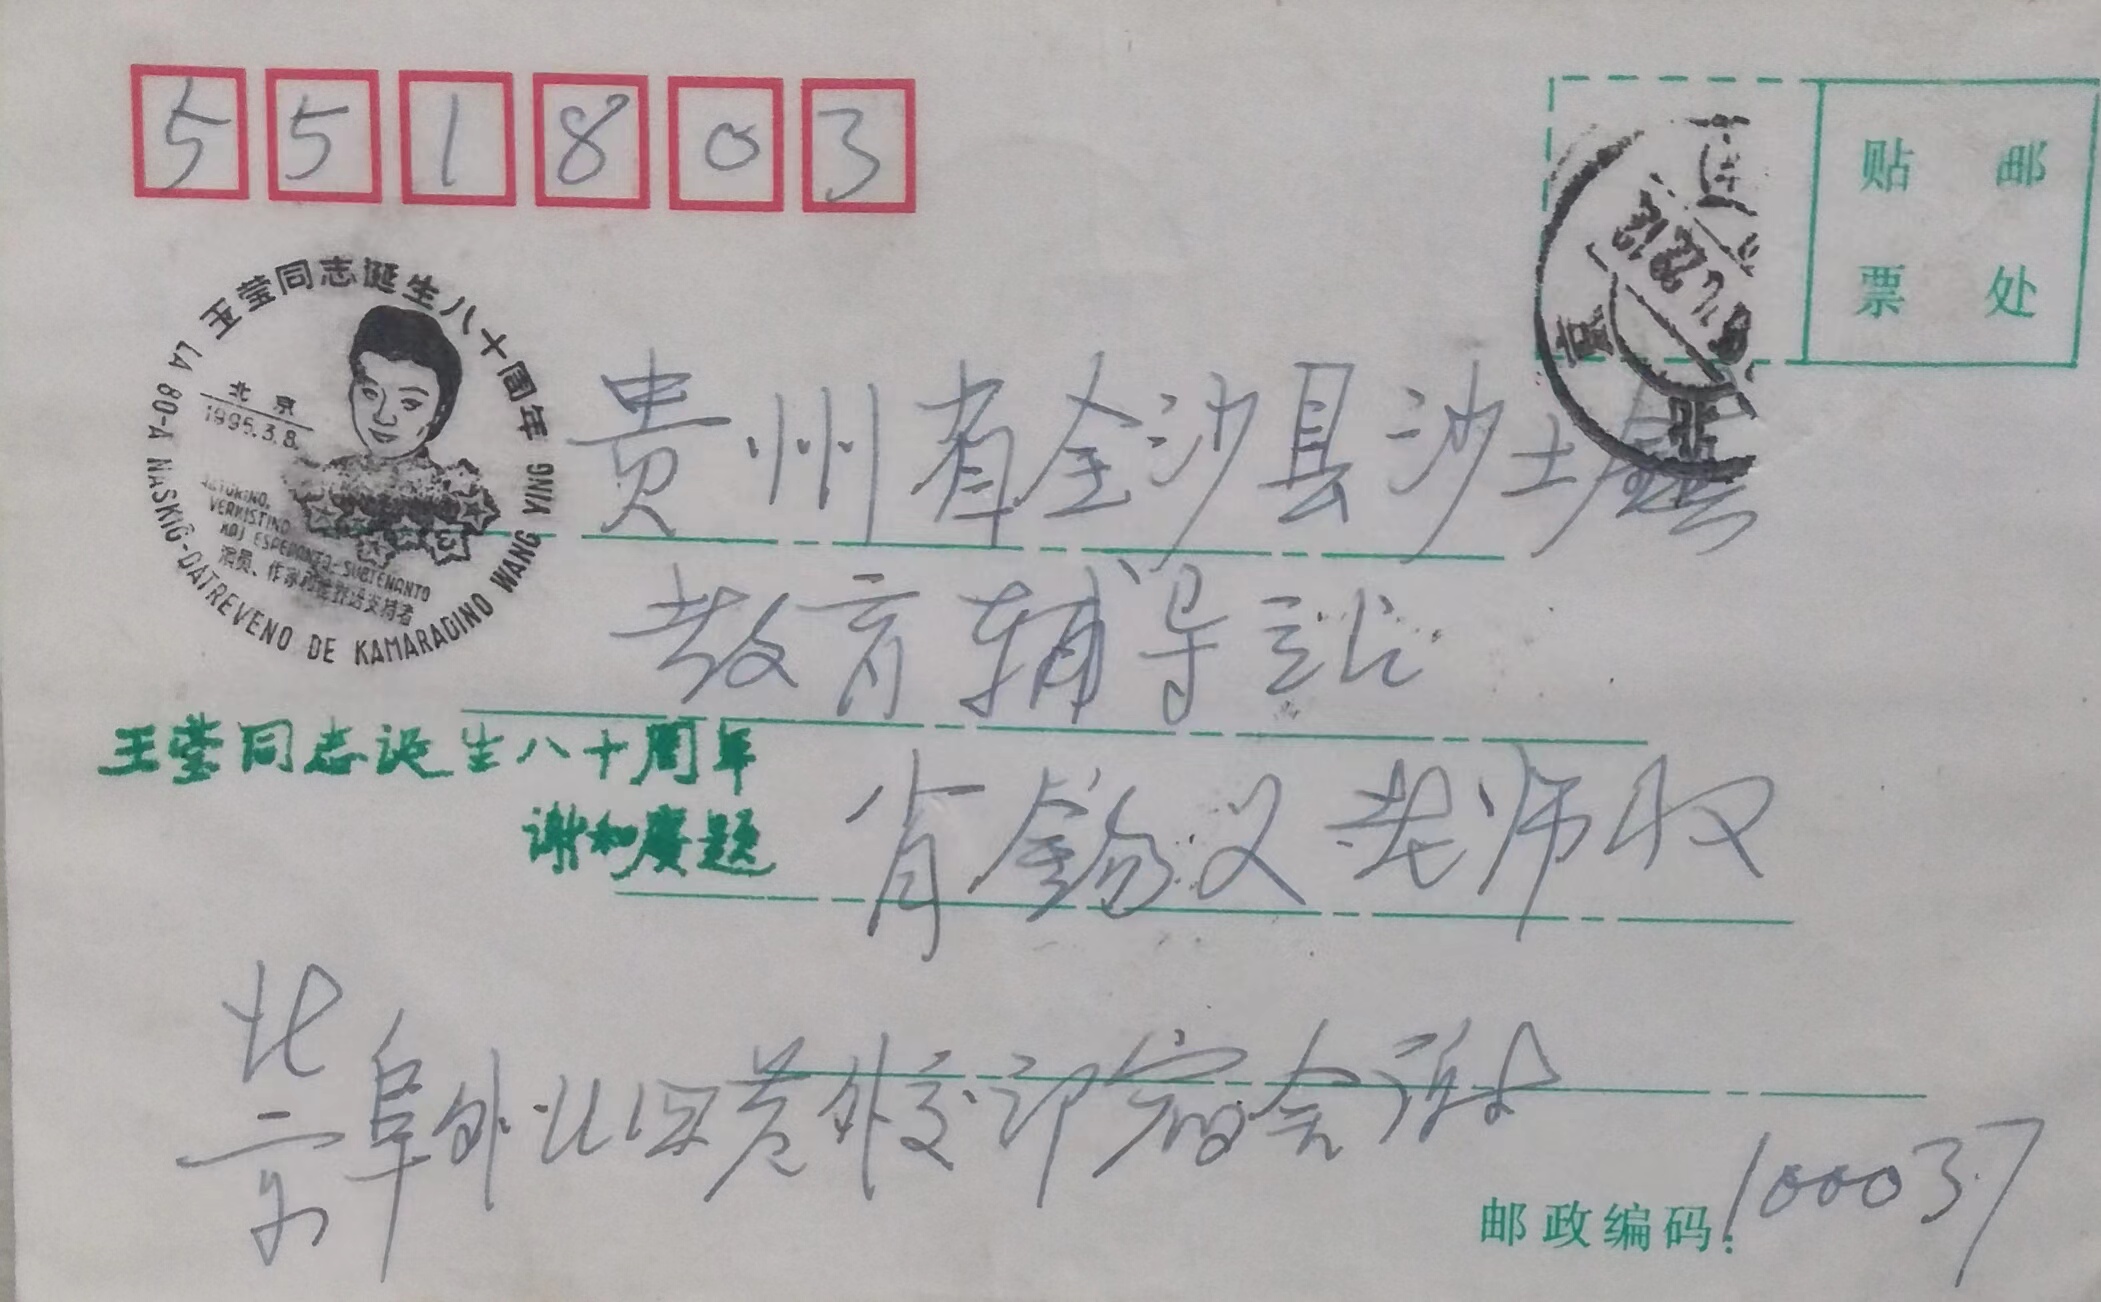 551803
贴 邮
票 处
王莹同志诞生八十周年
北京
1995.3.8.
AKTORINO,
VERKISTINO
KAJ ESPERANTO-SUBTENANTO
演员、作家和世界语支持者
LA 80-A NASKIĜ-DATREVENO DE KAMARADINO WANG YING
北京
贵州省金沙县沙土镇
教育辅导站
王莹同志诞生八十周年
谢和赓题
肖锡义老师收
北京阜外北四巷外交部宿舍谢
邮政编码:100037